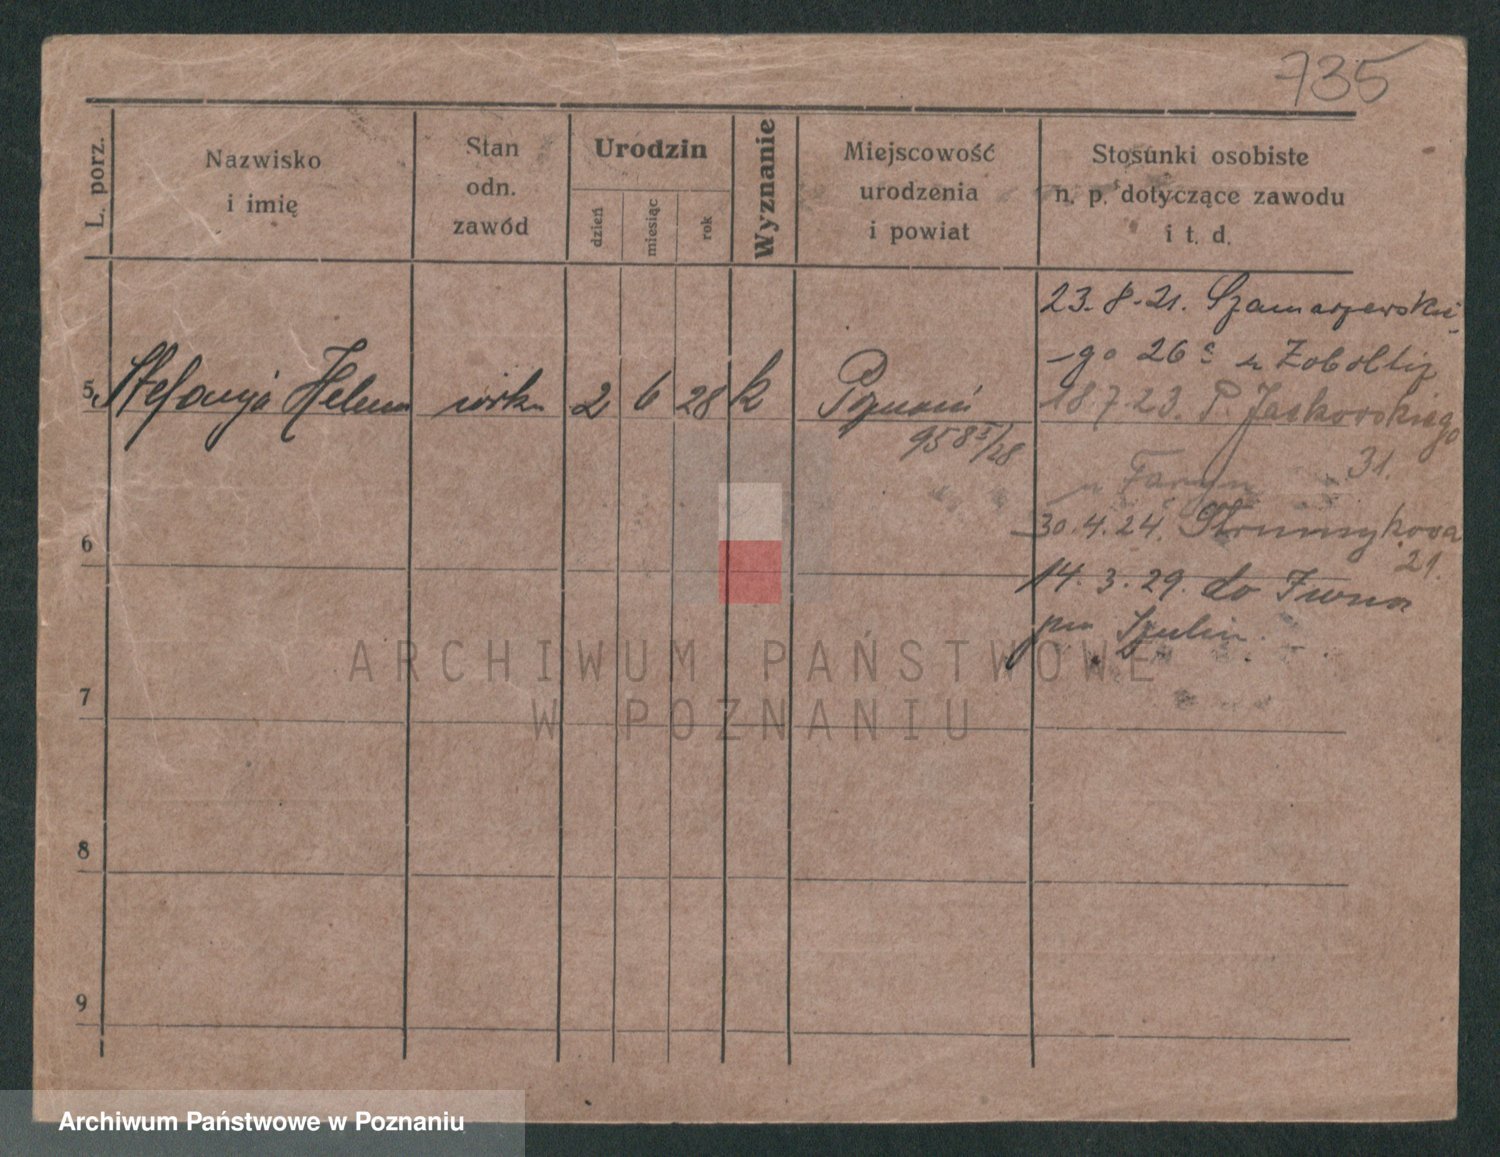 735
L. porz.
Nazwisko
i imię
Stan
odn.
zawód
Urodzin
dzień
miesiąc
rok
Wyznanie
Miejscowość
urodzenia
i powiat
Stosunki osobiste
n. p. dotyczące zawodu
i t. d.
23.8.21. Szamarzewskie-
-go 26
5 Stefanja Helena córka 2 6 28 k Poznań
18.7.23. P. Jackowskiego
31.
958 /28
6
30.4.24. Strumykowa
21.
14.3.29. do
7
8
9
ARCHIWUM PAŃSTWOWE
W POZNANIU
Archiwum Państwowe w Poznaniu